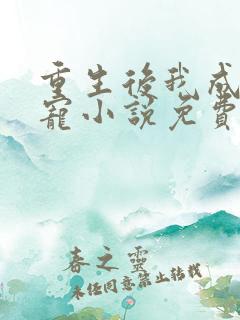 重生後我成
寵小說免費
春之靈
未经同意禁止转载